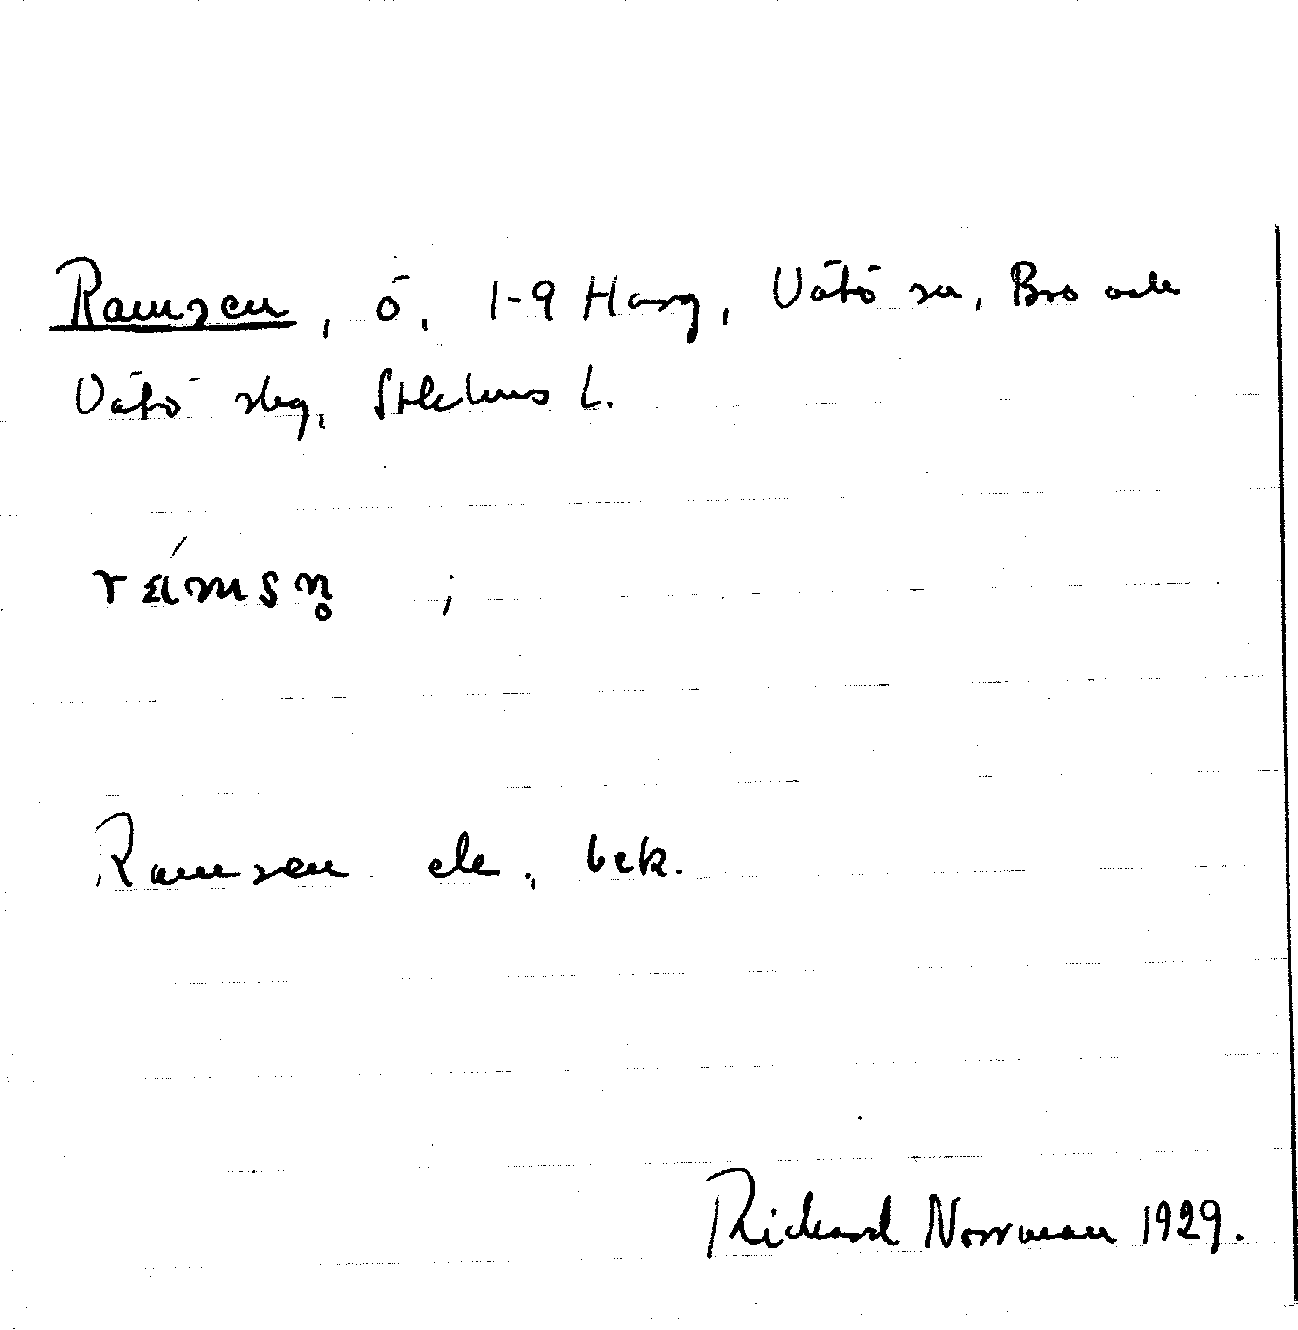 Ramsen, ö, 1-9 Harg, Vätö sn, Bro och
Vätö skg, Sthlms L.
rámsn̥ ;
Ramsen ek., bek.
Rickard Norrman 1929.